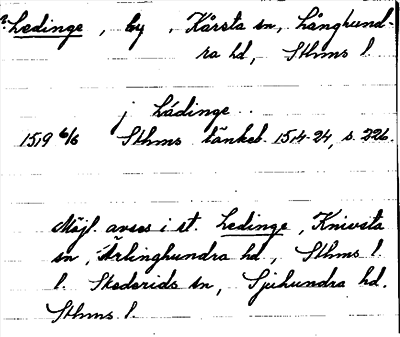 ?: Ledinge, by, Kårsta sn, Långhund-
ra hd, Sthms l.
j Lädinge..
1519 6/6 Sthms tänkeb. 1514-24, s. 226.
Möjl. avses i st. Ledinge, Knivsta
sn, Ärlinghundra hd, Sthms l.
l. Skederids sn, Sjuhundra hd.
Sthms l.